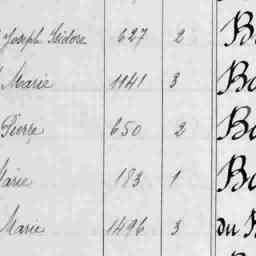 Joseph Isidore 627 2 B
Marie 1141 3 Ba
Pierre 650 2 Ba
Marie 183 1 Ba
Marie 1496 3 du B